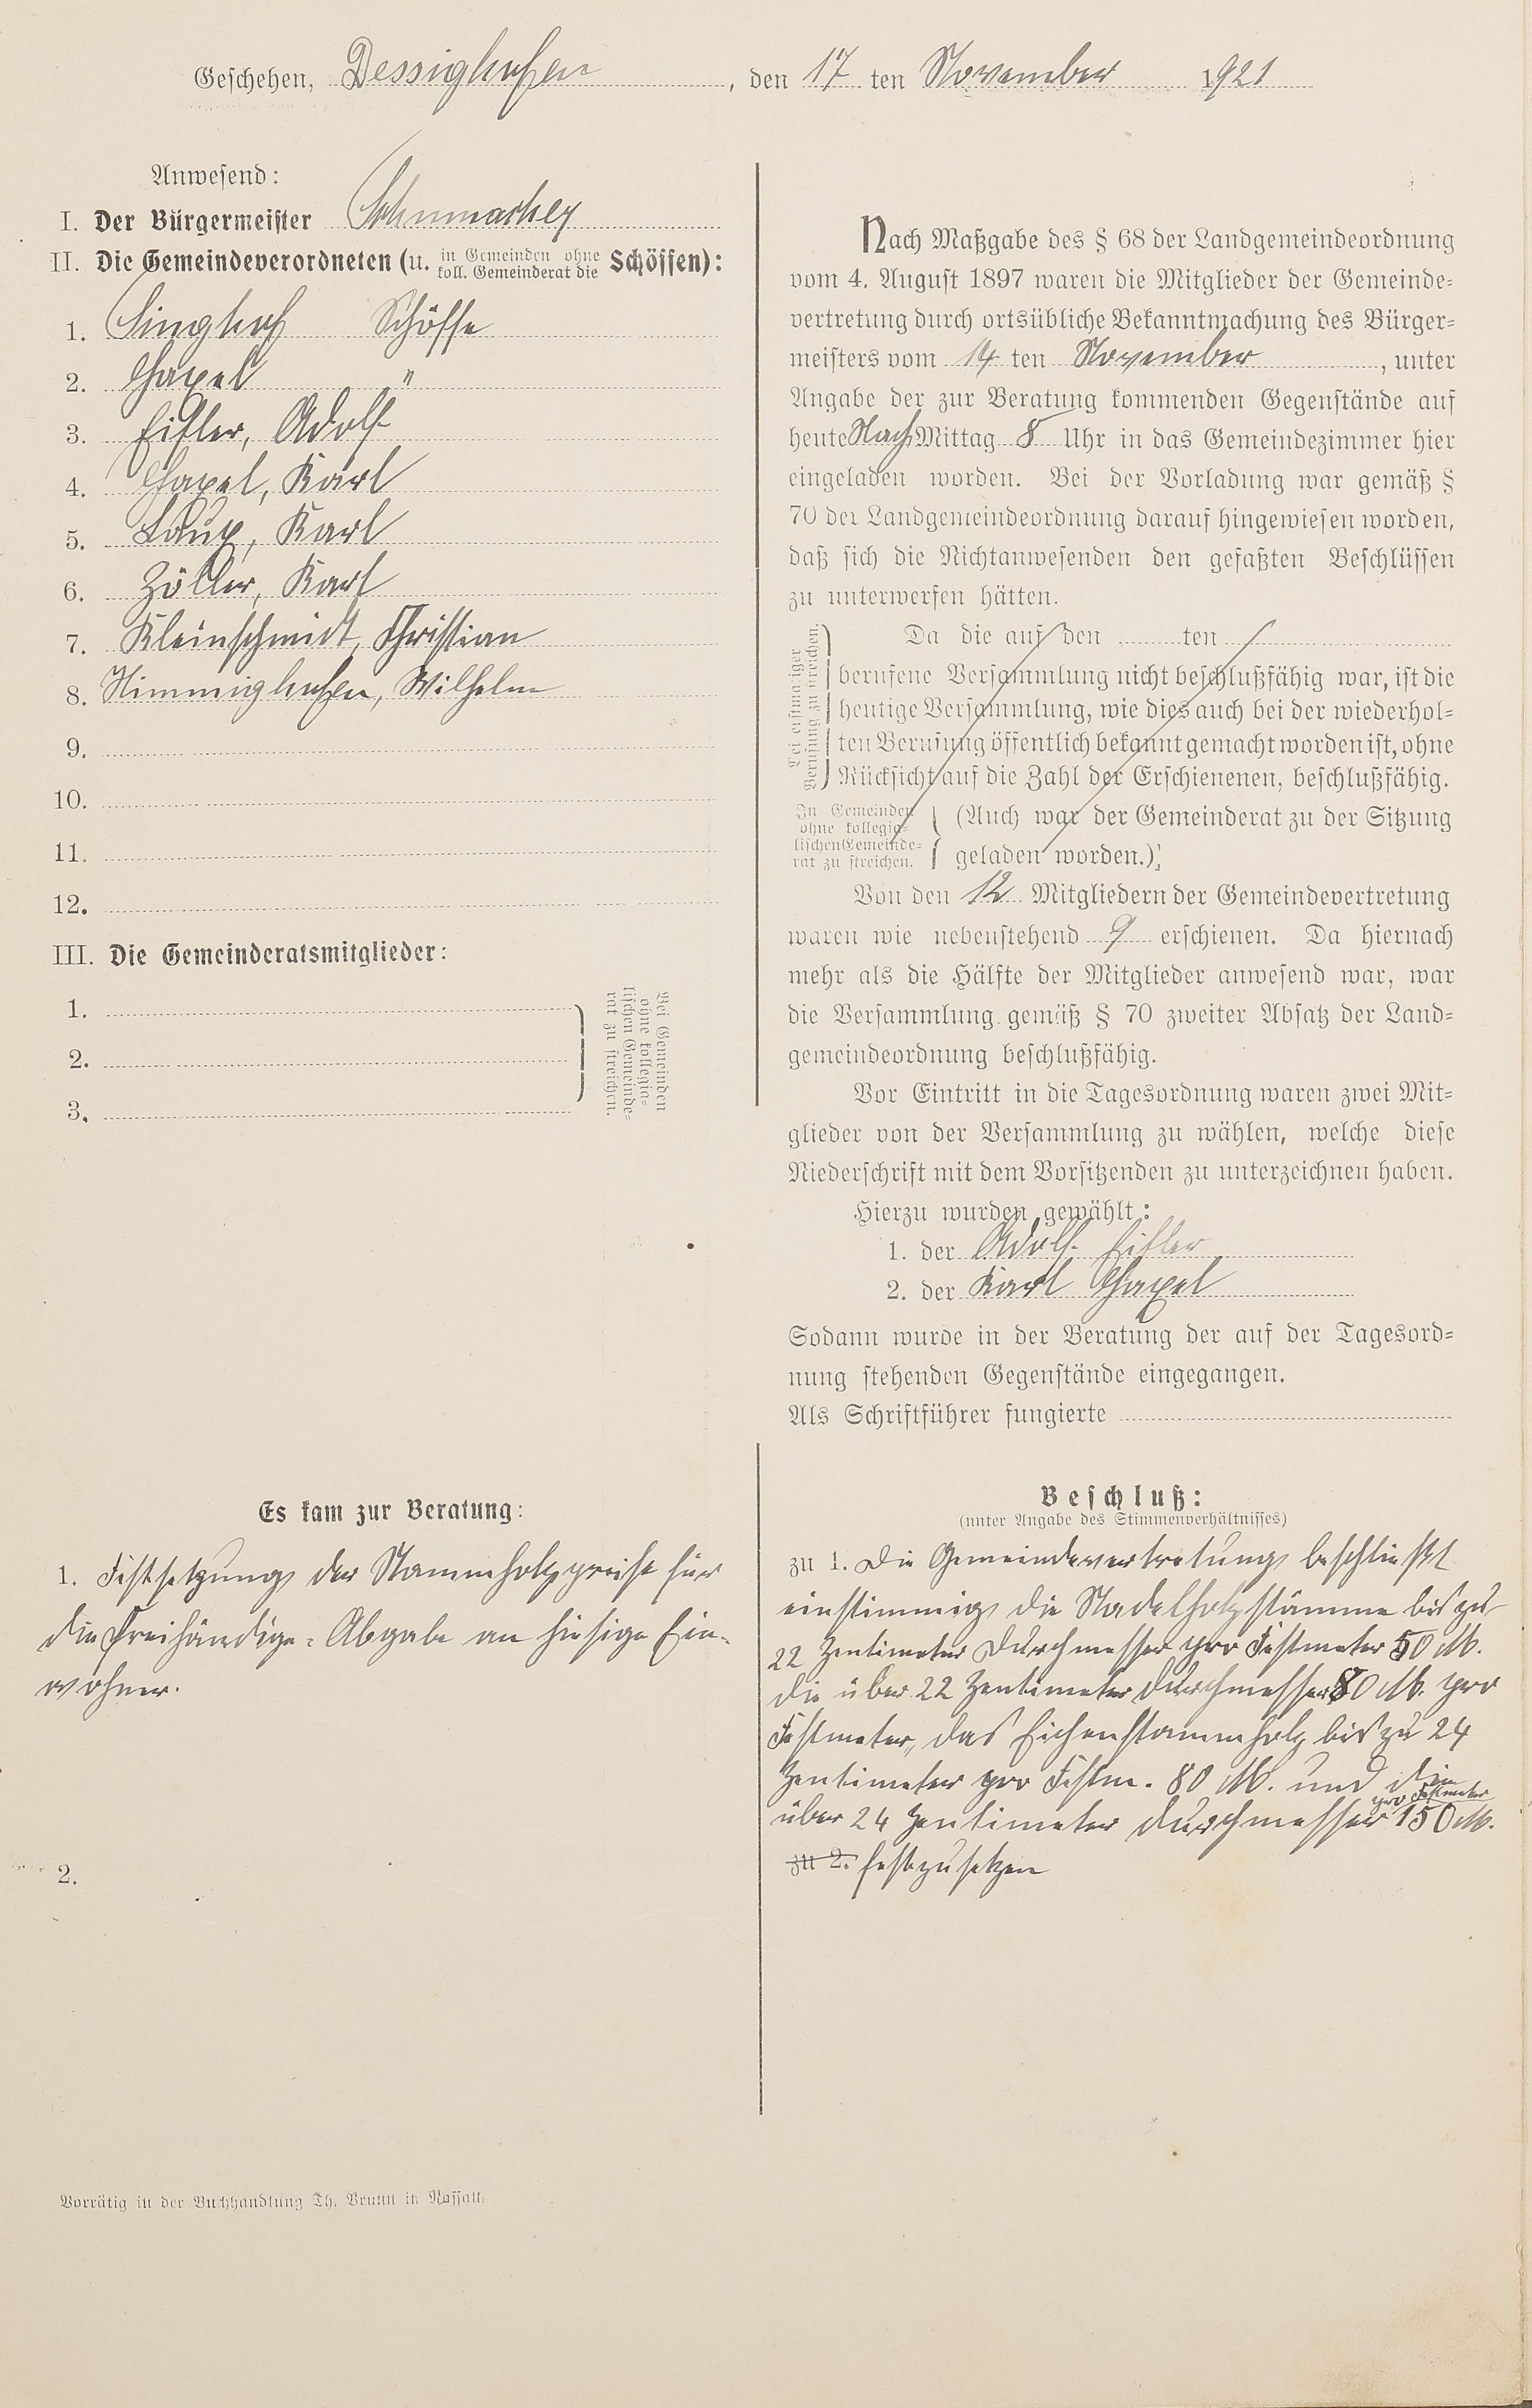 Geschehen, Dessighofen, den 17 ten November 1921
Anwesend:
I. Der Bürgermeister Schumacher
II. Die Gemeindeverordneten (u. in Gemeinden ohne koll. Gemeinderat die Schöffen):
1. Singhof Schöffe
2. Gapel "
3. Eisler, Adolf
4. Gapel, Karl
5. Laux, Karl
6. Zöller, Karl
7. Kleinschmidt, Christian
8. Himmighofen, Wilhelm
9.
10.
11.
12.
III. Die Gemeinderatsmitglieder:
1.
2.
3.
Bei Gemeinden
ohne kollegia-
lischen Gemeinde-
rat zu streichen.
Nach Maßgabe des § 68 der Landgemeindeordnung
vom 4. August 1897 waren die Mitglieder der Gemeinde-
vertretung durch ortsübliche Bekanntmachung des Bürger-
meisters vom 14 ten November, unter
Angabe der zur Beratung kommenden Gegenstände auf
heute Nach Mittag 8 Uhr in das Gemeindezimmer hier
eingeladen worden. Bei der Vorladung war gemäß §
70 der Landgemeindeordnung darauf hingewiesen worden,
daß sich die Nichtanwesenden den gefaßten Beschlüssen
zu unterwerfen hätten.
Bei erstmaliger
Berufung zu streichen.
Da die auf den ten
berufene Versammlung nicht beschlußfähig war, ist die
heutige Versammlung, wie dies auch bei der wiederhol-
ten Berufung öffentlich bekannt gemacht worden ist, ohne
Rücksicht auf die Zahl der Erschienenen, beschlußfähig.
In Gemeinden
ohne kollegia-
lischen Gemeinde-
rat zu streichen.
(Auch war der Gemeinderat zu der Sitzung
geladen worden.)
Von den 12 Mitgliedern der Gemeindevertretung
waren wie nebenstehend 9 erschienen. Da hiernach
mehr als die Hälfte der Mitglieder anwesend war, war
die Versammlung gemäß § 70 zweiter Absatz der Land-
gemeindeordnung beschlußfähig.
Vor Eintritt in die Tagesordnung waren zwei Mit-
glieder von der Versammlung zu wählen, welche diese
Niederschrift mit dem Vorsitzenden zu unterzeichnen haben.
Hierzu wurden gewählt:
1. der Adolf Eisler
2. der Karl Gapel
Sodann wurde in der Beratung der auf der Tagesord-
nung stehenden Gegenstände eingegangen.
Als Schriftführer fungierte
Es kam zur Beratung:
1. Festsetzung der Stammholzpreise für
die freihändige-Abgabe an hiesige Ein-
wohner.
2.
Beschluß:
(unter Angabe des Stimmenverhältnisses)
zu 1. Die Gemeindevertretung beschließt
einstimmig die Nadelholzstämme bis zu
22 Zentimeter Durchmesser pro Festmeter 50 M.
die über 22 Zentimeter Durchmesser 80 M. pro
Festmeter, das Eichenstammholz bis zu 24
Zentimeter pro Festm. 80 M. und die
über 24 Zentimeter Durchmesser pro Festmeter 150 M.
zu 2. festzusetzen
Vorrätig in der Buchhandlung Th. Brunn in Nassau.